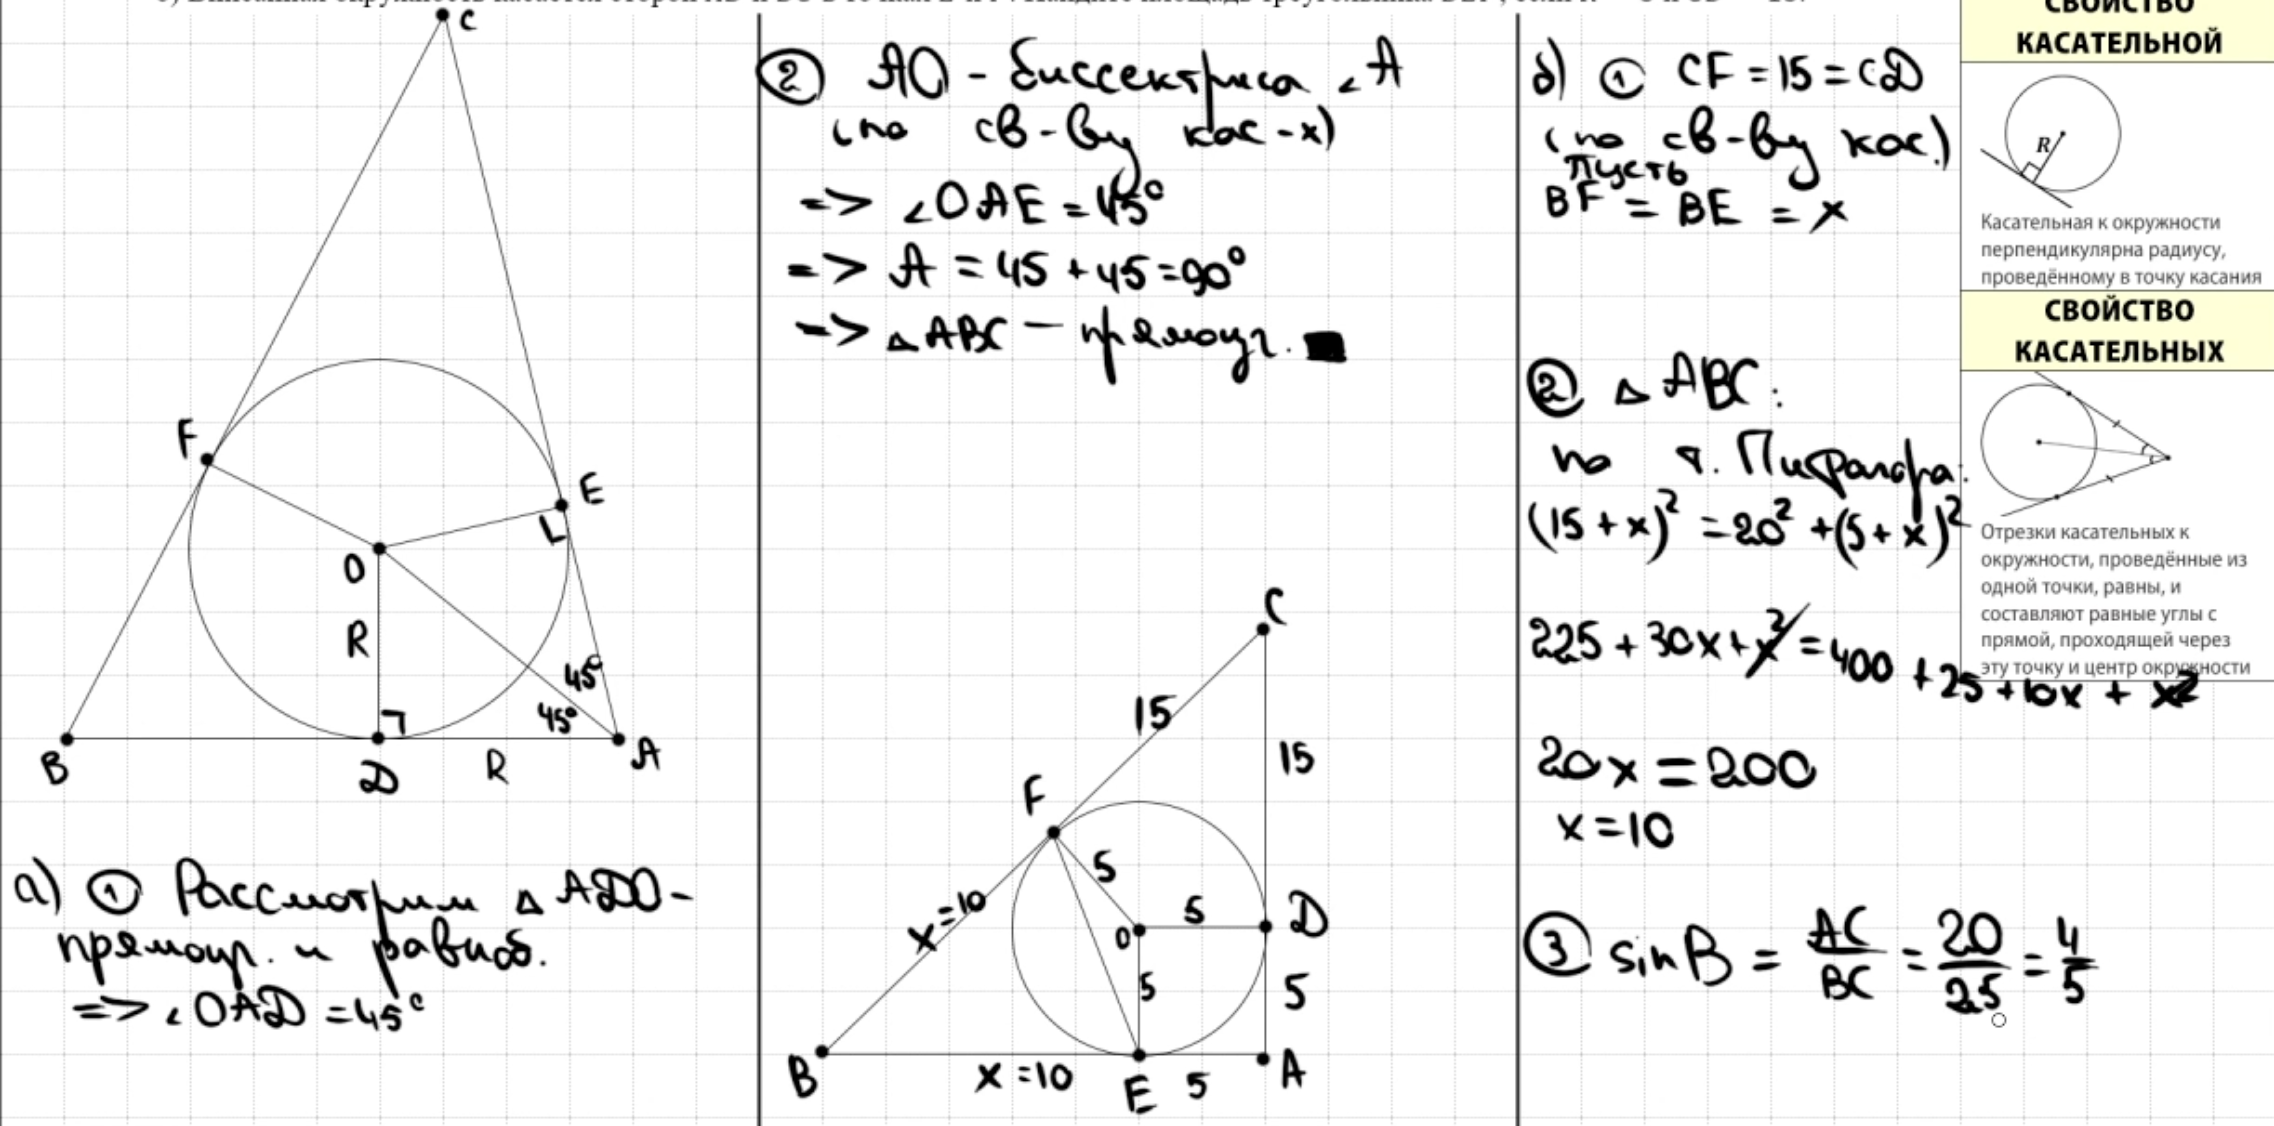 C
F
E
L
O
R
45°
45°
B
D
R
A
а) ① Рассмотрим △ ADO -
прямоуг. и равноб.
=> ∠OAD = 45°
② AO - биссектриса ∠A
(по св-ву кас-х)
=> ∠OAE = 45°
=> A = 45 + 45 = 90°
=> △ABC - прямоуг. ■
C
15
15
F
5
5
D
x=10
O
5
5
B
x=10
E
5
A
б) ① CF = 15 = CD
(по св-ву кас.)
Пусть
BF = BE = x
② △ ABC:
по т. Пифагора:
(15 + x)² = 20² + (5 + x)²
225 + 30x + x² = 400 + 25 + 10x + x²
20x = 200
x = 10
③ sin B = AC/BC = 20/25 = 4/5
СВОЙСТВО
КАСАТЕЛЬНОЙ
R
Касательная к окружности
перпендикулярна радиусу,
проведённому в точку касания
СВОЙСТВО
КАСАТЕЛЬНЫХ
Отрезки касательных к
окружности, проведённые из
одной точки, равны, и
составляют равные углы с
прямой, проходящей через
эту точку и центр окружности